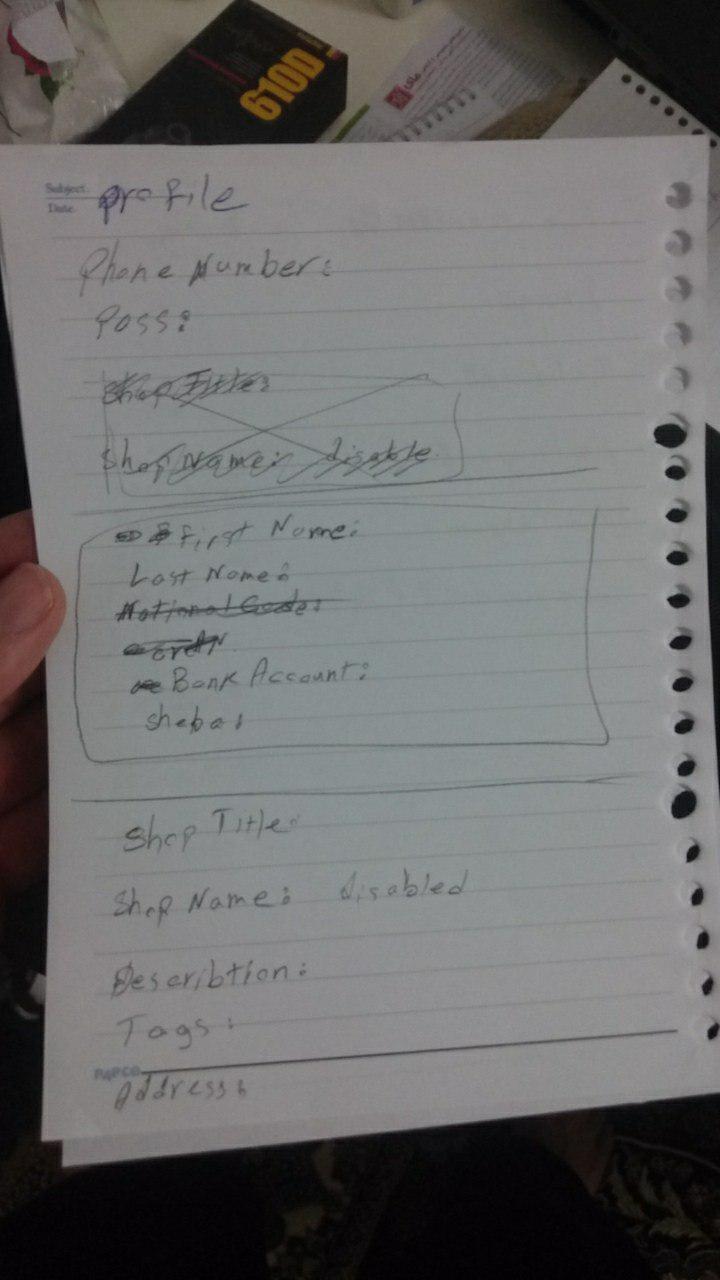 610D
Subject:
Date
profile
Phone Number:
Poss:
Shop Title:
Shop Name: disable
First Name:
Last Name:
National Code:
Bank Account:
sheba:
Shop Title:
Shop Name: disabled
Describtion:
Tags:
PAPCO
Address: